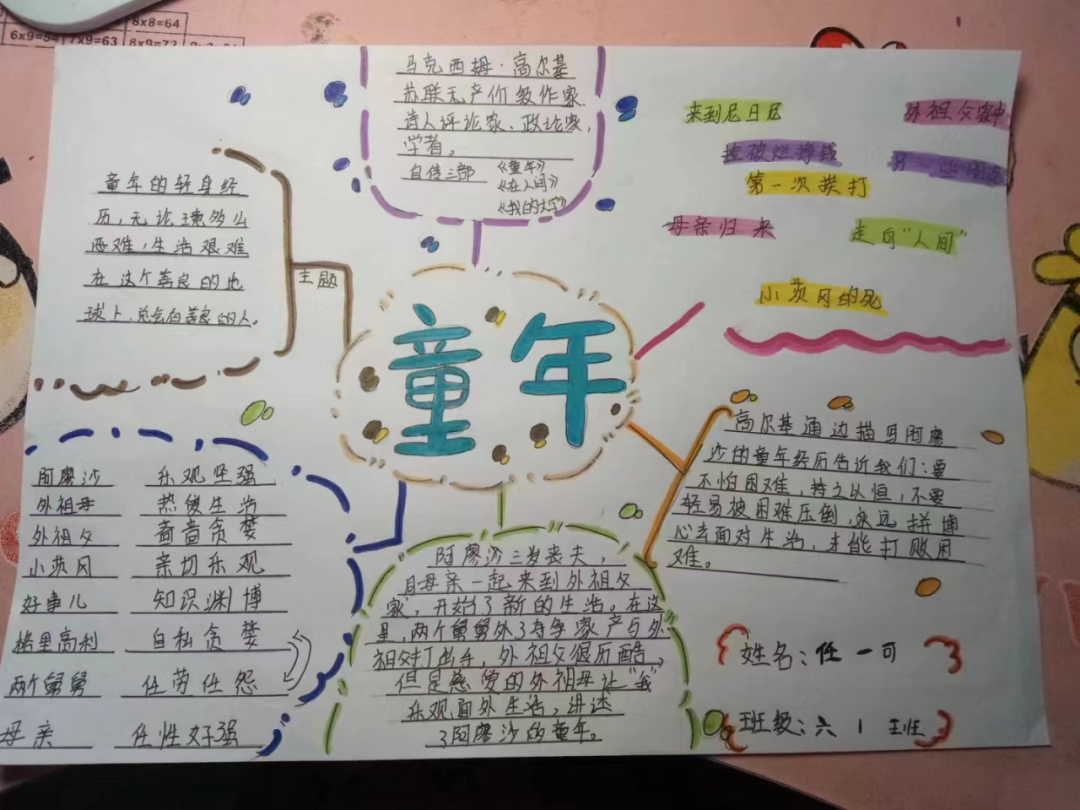 6x8=64
6x9=54 7x9=63 8x9=72
马克西姆·高尔基
苏联无产价级作家
诗人评论家、政论家,
学者。
自传三部
《童年》
《在人间》
《我的大学》
来到尼日尼
外祖父家中
捡破烂挣钱
第一次挨打
母亲归来
走向"人间"
小茨冈的死
童年的轻身经
历,无论
困难,生活艰难
在这个善良的地
球上,总会有善良的人。
主题
童年
阿廖沙 乐观坚强
外祖母 热爱生活
外祖父 吝啬贪婪
小茨冈 亲切乐观
好事儿 知识渊博
格里高利 自私贪婪
两个舅舅 任劳任怨
母亲 任性好强
阿廖沙三岁丧夫,
自母亲一起来到外祖父
家,开始了新的生活。在这
里,两个舅舅外了夺争家产与外
祖对打出手,外祖父很厉酷,
但是慈爱的外祖母让"我"
乐观面外生活,讲述
了阿廖沙的童年。
高尔基通边描写阿廖
沙的童年经历告近我们:要
不怕困难,持之以恒,不要
轻易被困难压倒,永远拼搏
心去面对生活,才能打败困
难。
姓名:任一可
班级:六 1 班